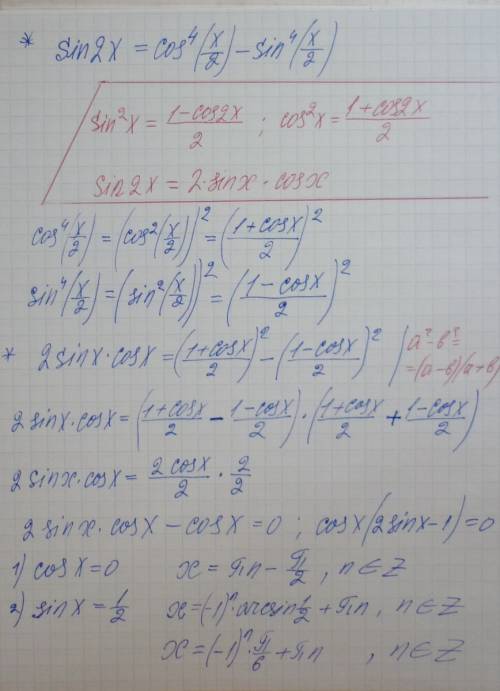 * sin2x = cos⁴(x/2) − sin⁴(x/2)
sin²x = (1−cos2x)/2 ; cos²x = (1+cos2x)/2
sin2x = 2·sinx·cosx
cos⁴(x/2) = (cos²(x/2))² = ((1+cosx)/2)²
sin⁴(x/2) = (sin²(x/2))² = ((1−cosx)/2)²
* 2sinx·cosx = ((1+cosx)/2)² − ((1−cosx)/2)² | a²−b²=
=(a−b)(a+b)
2sinx·cosx = ((1+cosx)/2 − (1−cosx)/2)·((1+cosx)/2 + (1−cosx)/2)
2sinx·cosx = 2cosx/2 · 2/2
2sinx·cosx − cosx = 0 ; cosx(2sinx−1)=0
1) cosx=0 x = πn − π/2 , n∈Z
2) sinx = 1/2 x = (−1)ⁿ·arcsin 1/2 + πn, n∈Z
x = (−1)ⁿ·π/6 + πn , n∈Z